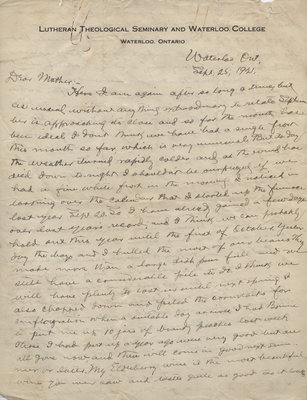 LUTHERAN THEOLOGICAL SEMINARY AND WATERLOO COLLEGE
WATERLOO, ONTARIO
Waterloo Ont.
Sept. 25, 1921.
Dear Mother:-
Here I am again after so long a time, but
as usual, without anything extraordinary to relate. Septem
ber is approaching its close and so far the month has
been ideal. I don't think we have had a single frost
this month so far which is very unusual. But to-day
the weather turned rapidly colder and, as the wind has
died down to-night, I shouldn't be surprised if we
had a fine white frost in the morning. I noticed in
looking over the calendar that I started the furnace
last year Sept. 20. So I have already gained a few days
over last year's record, and I think we can probably
hold out this year until the first of October. Yester
day the boys and I hulled the most of our beans. They
make more than a large dish pan full and we
still have a considerable pile to do. I think we
will have plenty to last us until next spring. I
also chopped down and piled the cornstalks for
conflagration when a suitable day arrives. I had
put me up 10 jars of brandy peaches last week.
Those I had put up a year ago were very good but are
all gone now, and these will come in good next sum-
mer or later. My Elderberry wine is the most beautiful
wine you ever saw and tastes quite as good as it looks